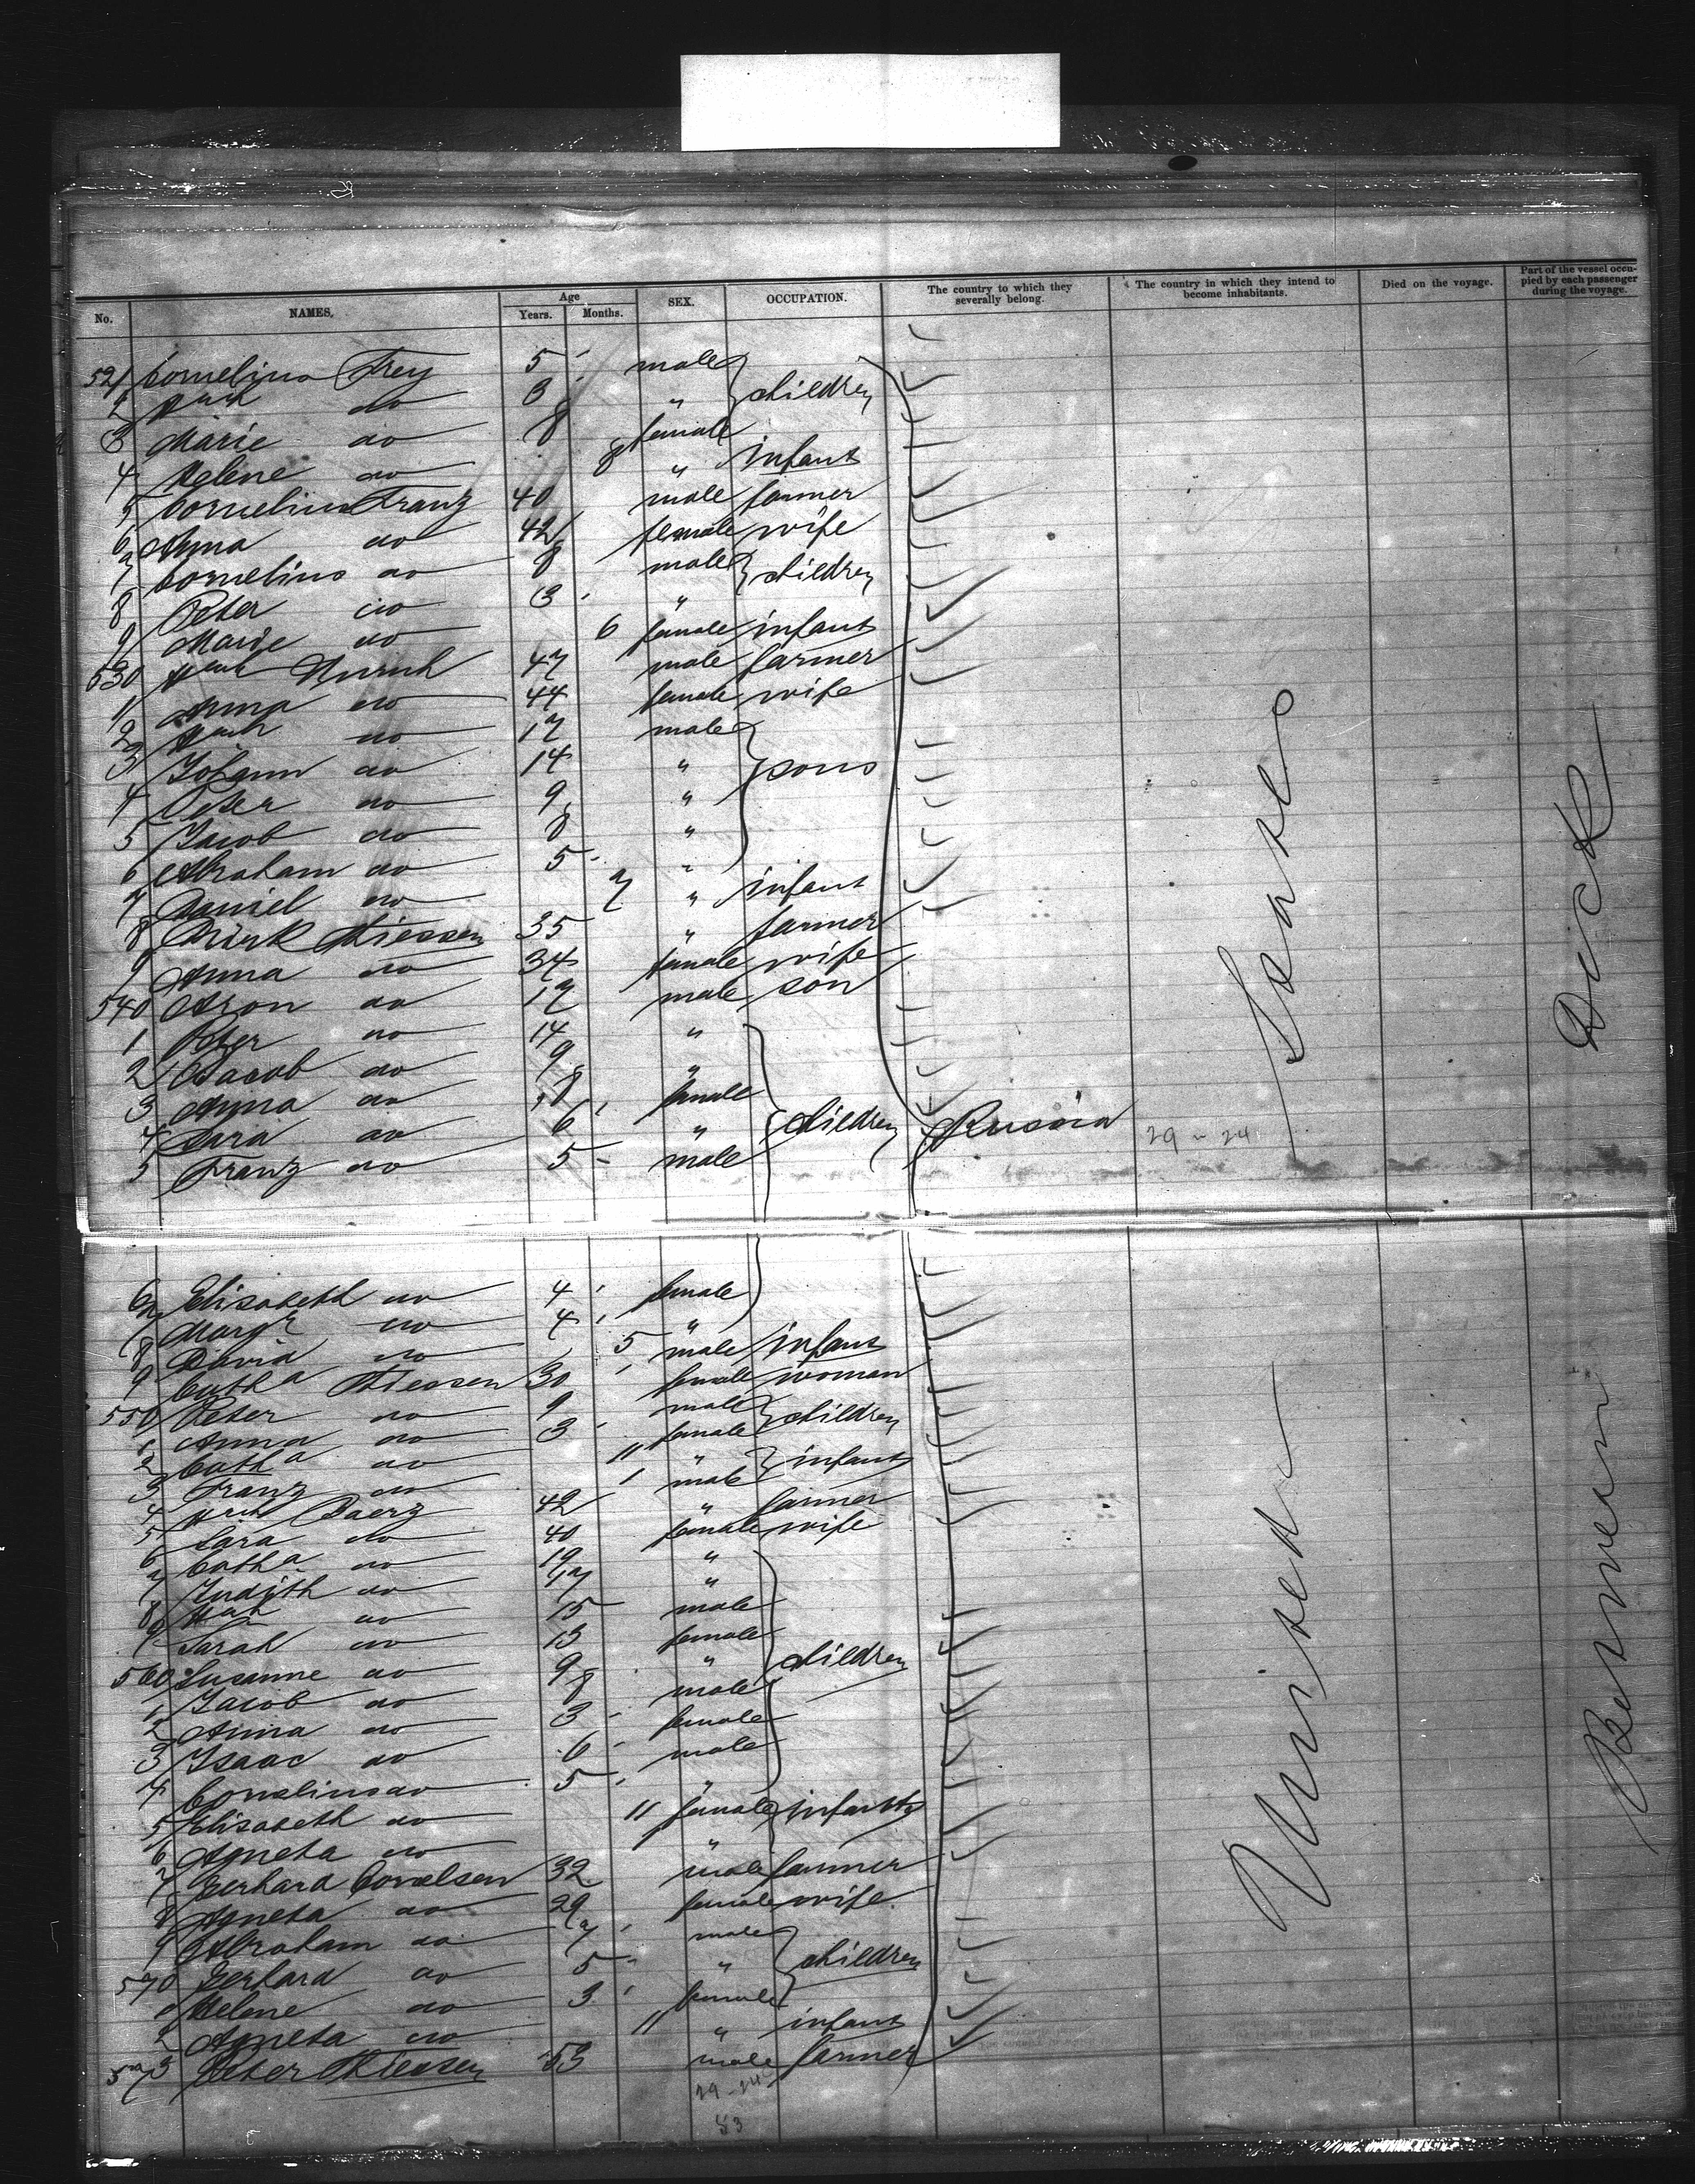 No. NAMES. Age Years. Months. SEX. OCCUPATION. The country to which they severally belong. The country in which they intend to become inhabitants. Died on the voyage. Part of the vessel occupied by each passenger during the voyage.
521 Cornelius Frey 5 male
2 Hnch do 3 " children
3 Marie do 8 female
4 Helene do 8 " infant
5 Cornelius Franz 40 male farmer
6 Anna do 42 female wife
7 Cornelius do 8 male children
8 Peter do 3 "
9 Marie do 6 female infant
530 Hnch 47 male farmer
1 Anna do 44 female wife
2 Hnch do 17 male
3 Johann do 14 " sons
4 Peter do 9 "
5 Jacob do 8 "
6 Abraham do 5 "
7 Daniel do 7 " infant
8 Dirk Thiessen 35 " farmer
9 Anna do 34 female wife
540 Aron do 17 male son
1 Peter do 14 "
2 Jacob do 9 "
3 Anna do 8 female
4 Sara do 6 " children Russia 29-24
5 Franz do 5 male
6 Elisabeth do 4 female
7 Margr do 4 "
8 David do 5 male infant
9 Catha Thiessen 30 female woman
550 Peter do 9 male children
1 Anna do 3 female
2 Catha do 11 " infants
3 Franz do 1 male
4 Hrch Baerg 42 " farmer
5 Sara do 40 female wife
6 Catha do 19 "
7 Judith do 17 "
8 Hch do 15 male
9 Sarah do 13 female
560 Susanne do 9 " children
1 Jacob do 8 male
2 Anna do 3 female
3 Isaac do 6 male
4 Cornelius do 5 "
5 Elisabeth do 11 female infants
6 Agneta do "
7 Gerhard Cornelsen 32 male farmer
8 Agneta do 29 female wife
9 Abraham do 7 male
570 Gerhard do 5 " children
1 Helene do 3 female
2 Agneta do 11 " infant
573 Peter Thiessen 53 male farmer
29-24
53
United States
Between Deck